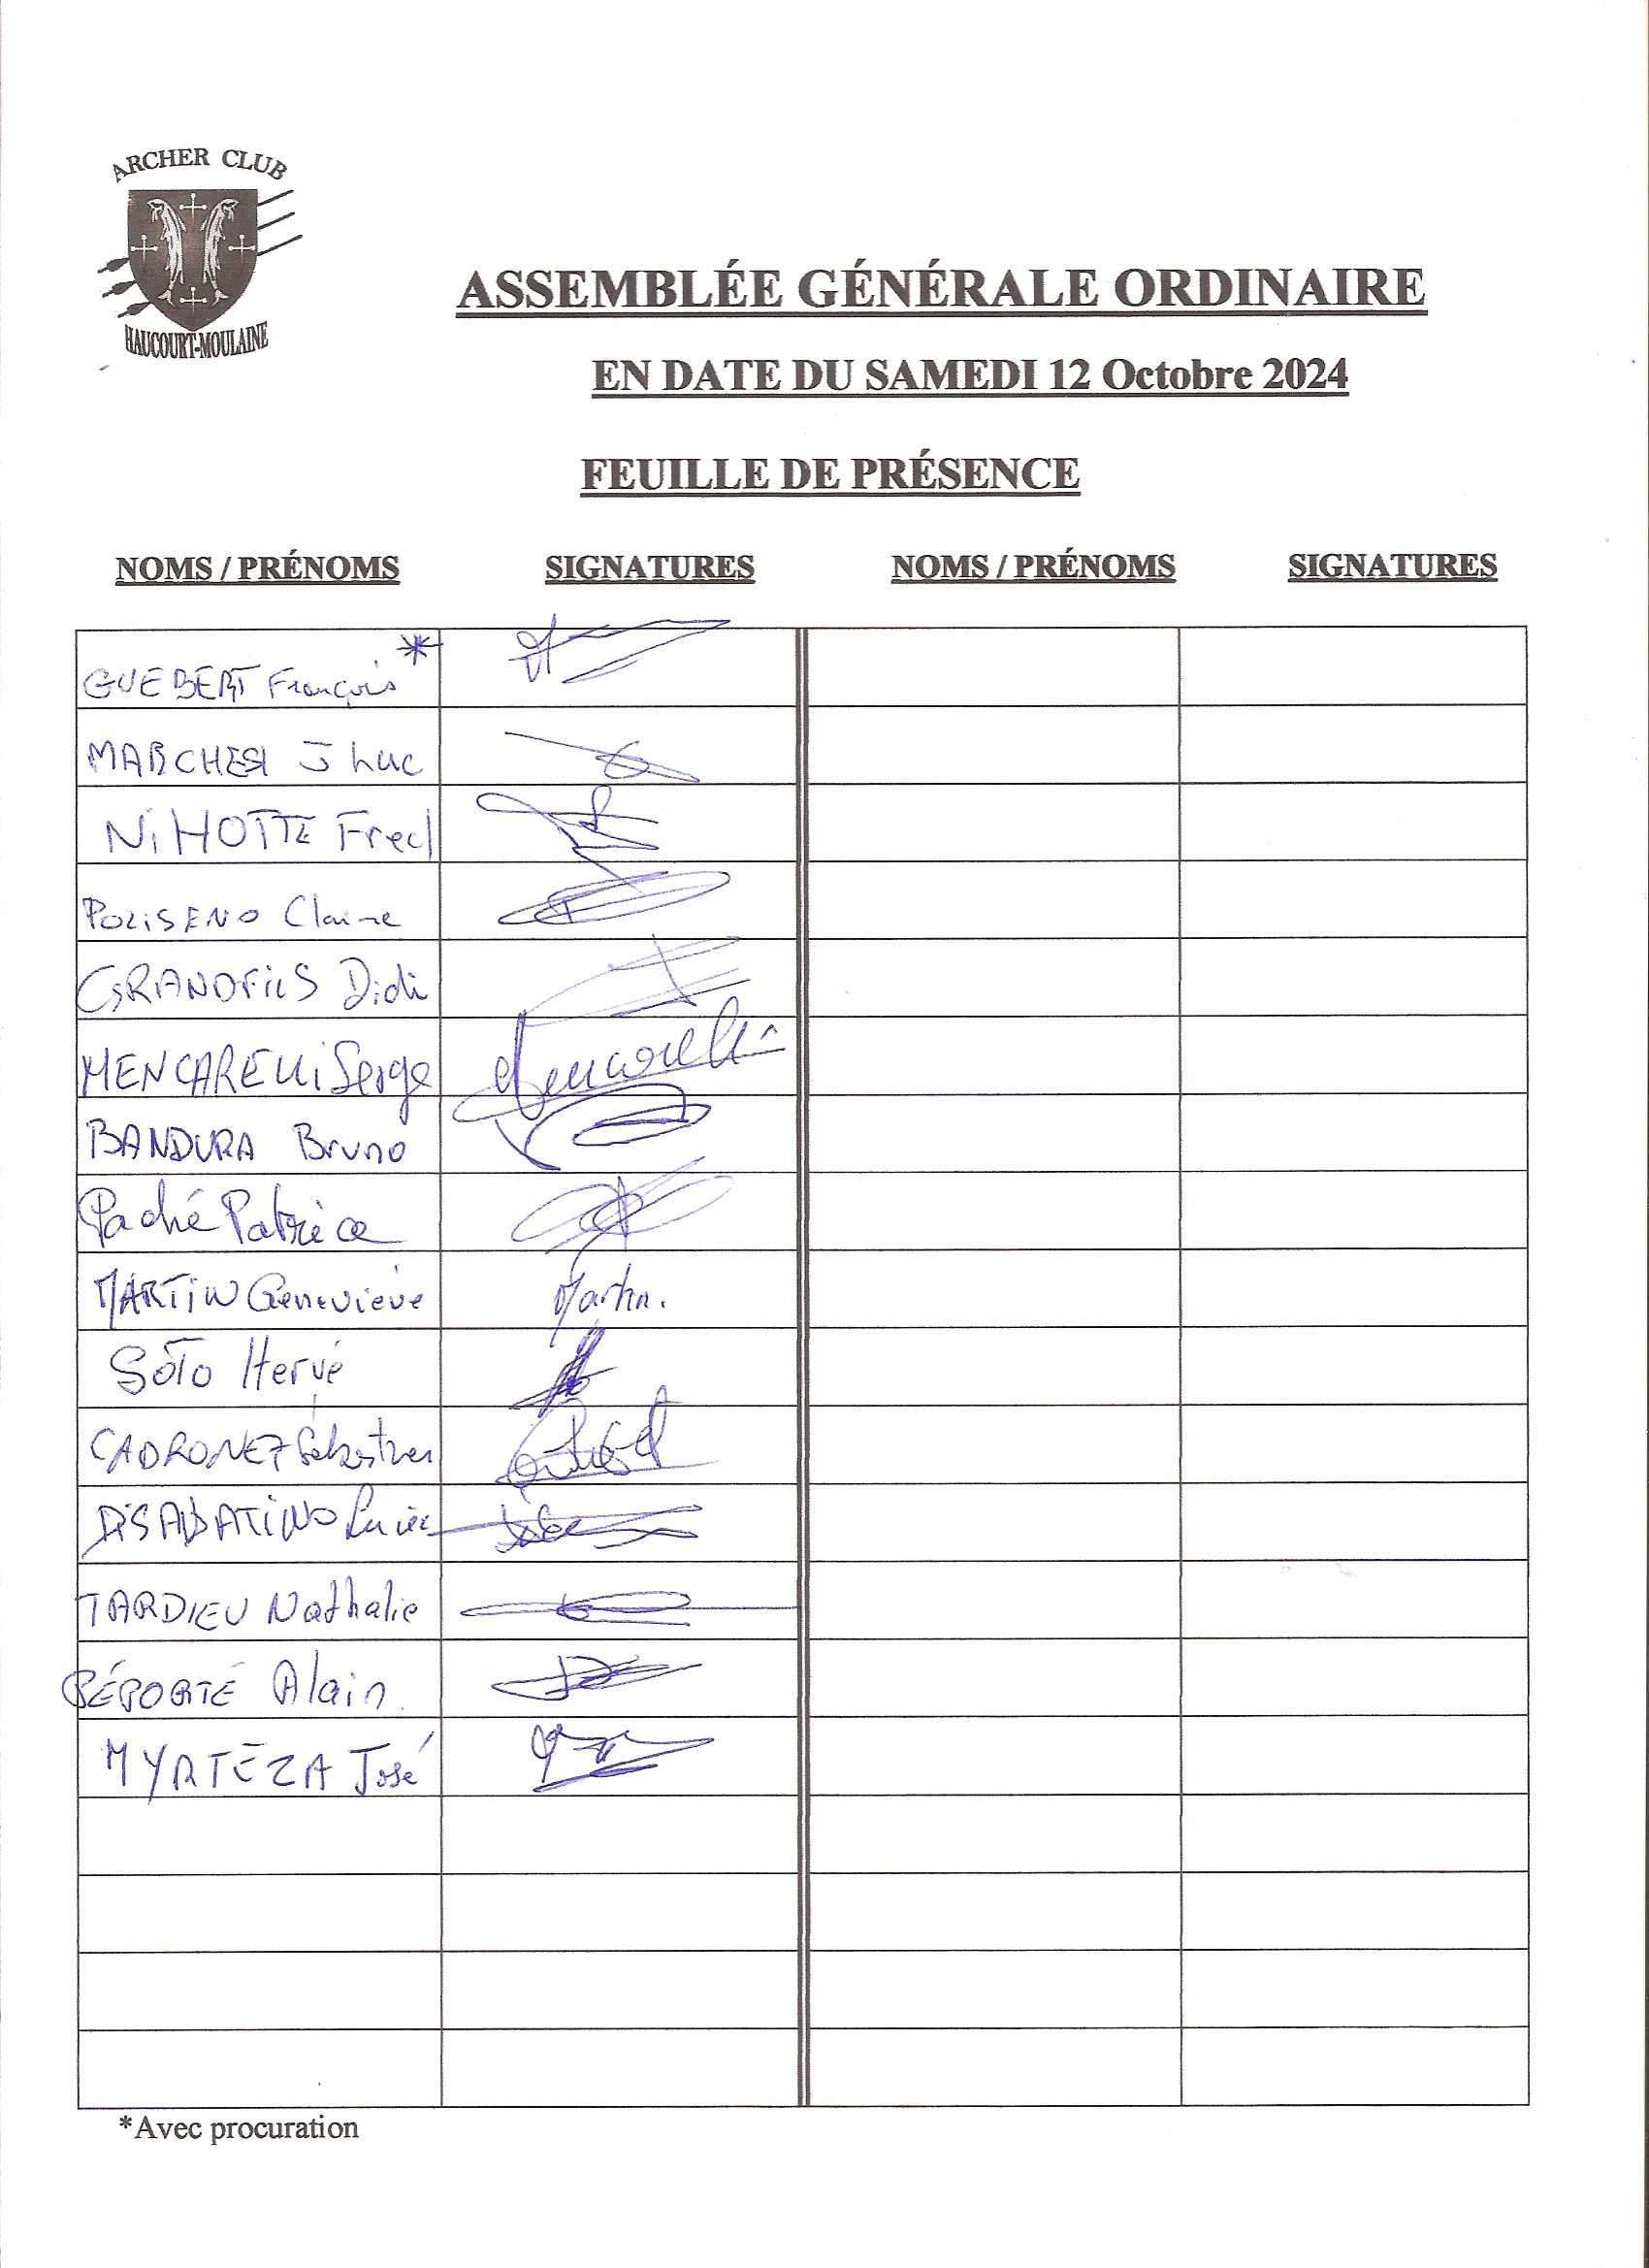 ARCHER CLUB
HAUCOURT-MOULAINE
ASSEMBLÉE GÉNÉRALE ORDINAIRE
EN DATE DU SAMEDI 12 Octobre 2024
FEUILLE DE PRÉSENCE
NOMS / PRÉNOMS SIGNATURES NOMS / PRÉNOMS SIGNATURES
GUEBERT François *
MARCHESI J Luc
NiHOTTE Fred
POLiSENO Claire
GRANDFILS Didi
MENCARELLi Serge Mencarelli
BANDURA Bruno
Paché Patrice
MARTIN Geneviève Martin.
SOTO Hervé
CADRONET Sébastien
DISABATINO
TARDIEU Nathalie
BÉPORTÉ Alain
MYRTEZA José
*Avec procuration